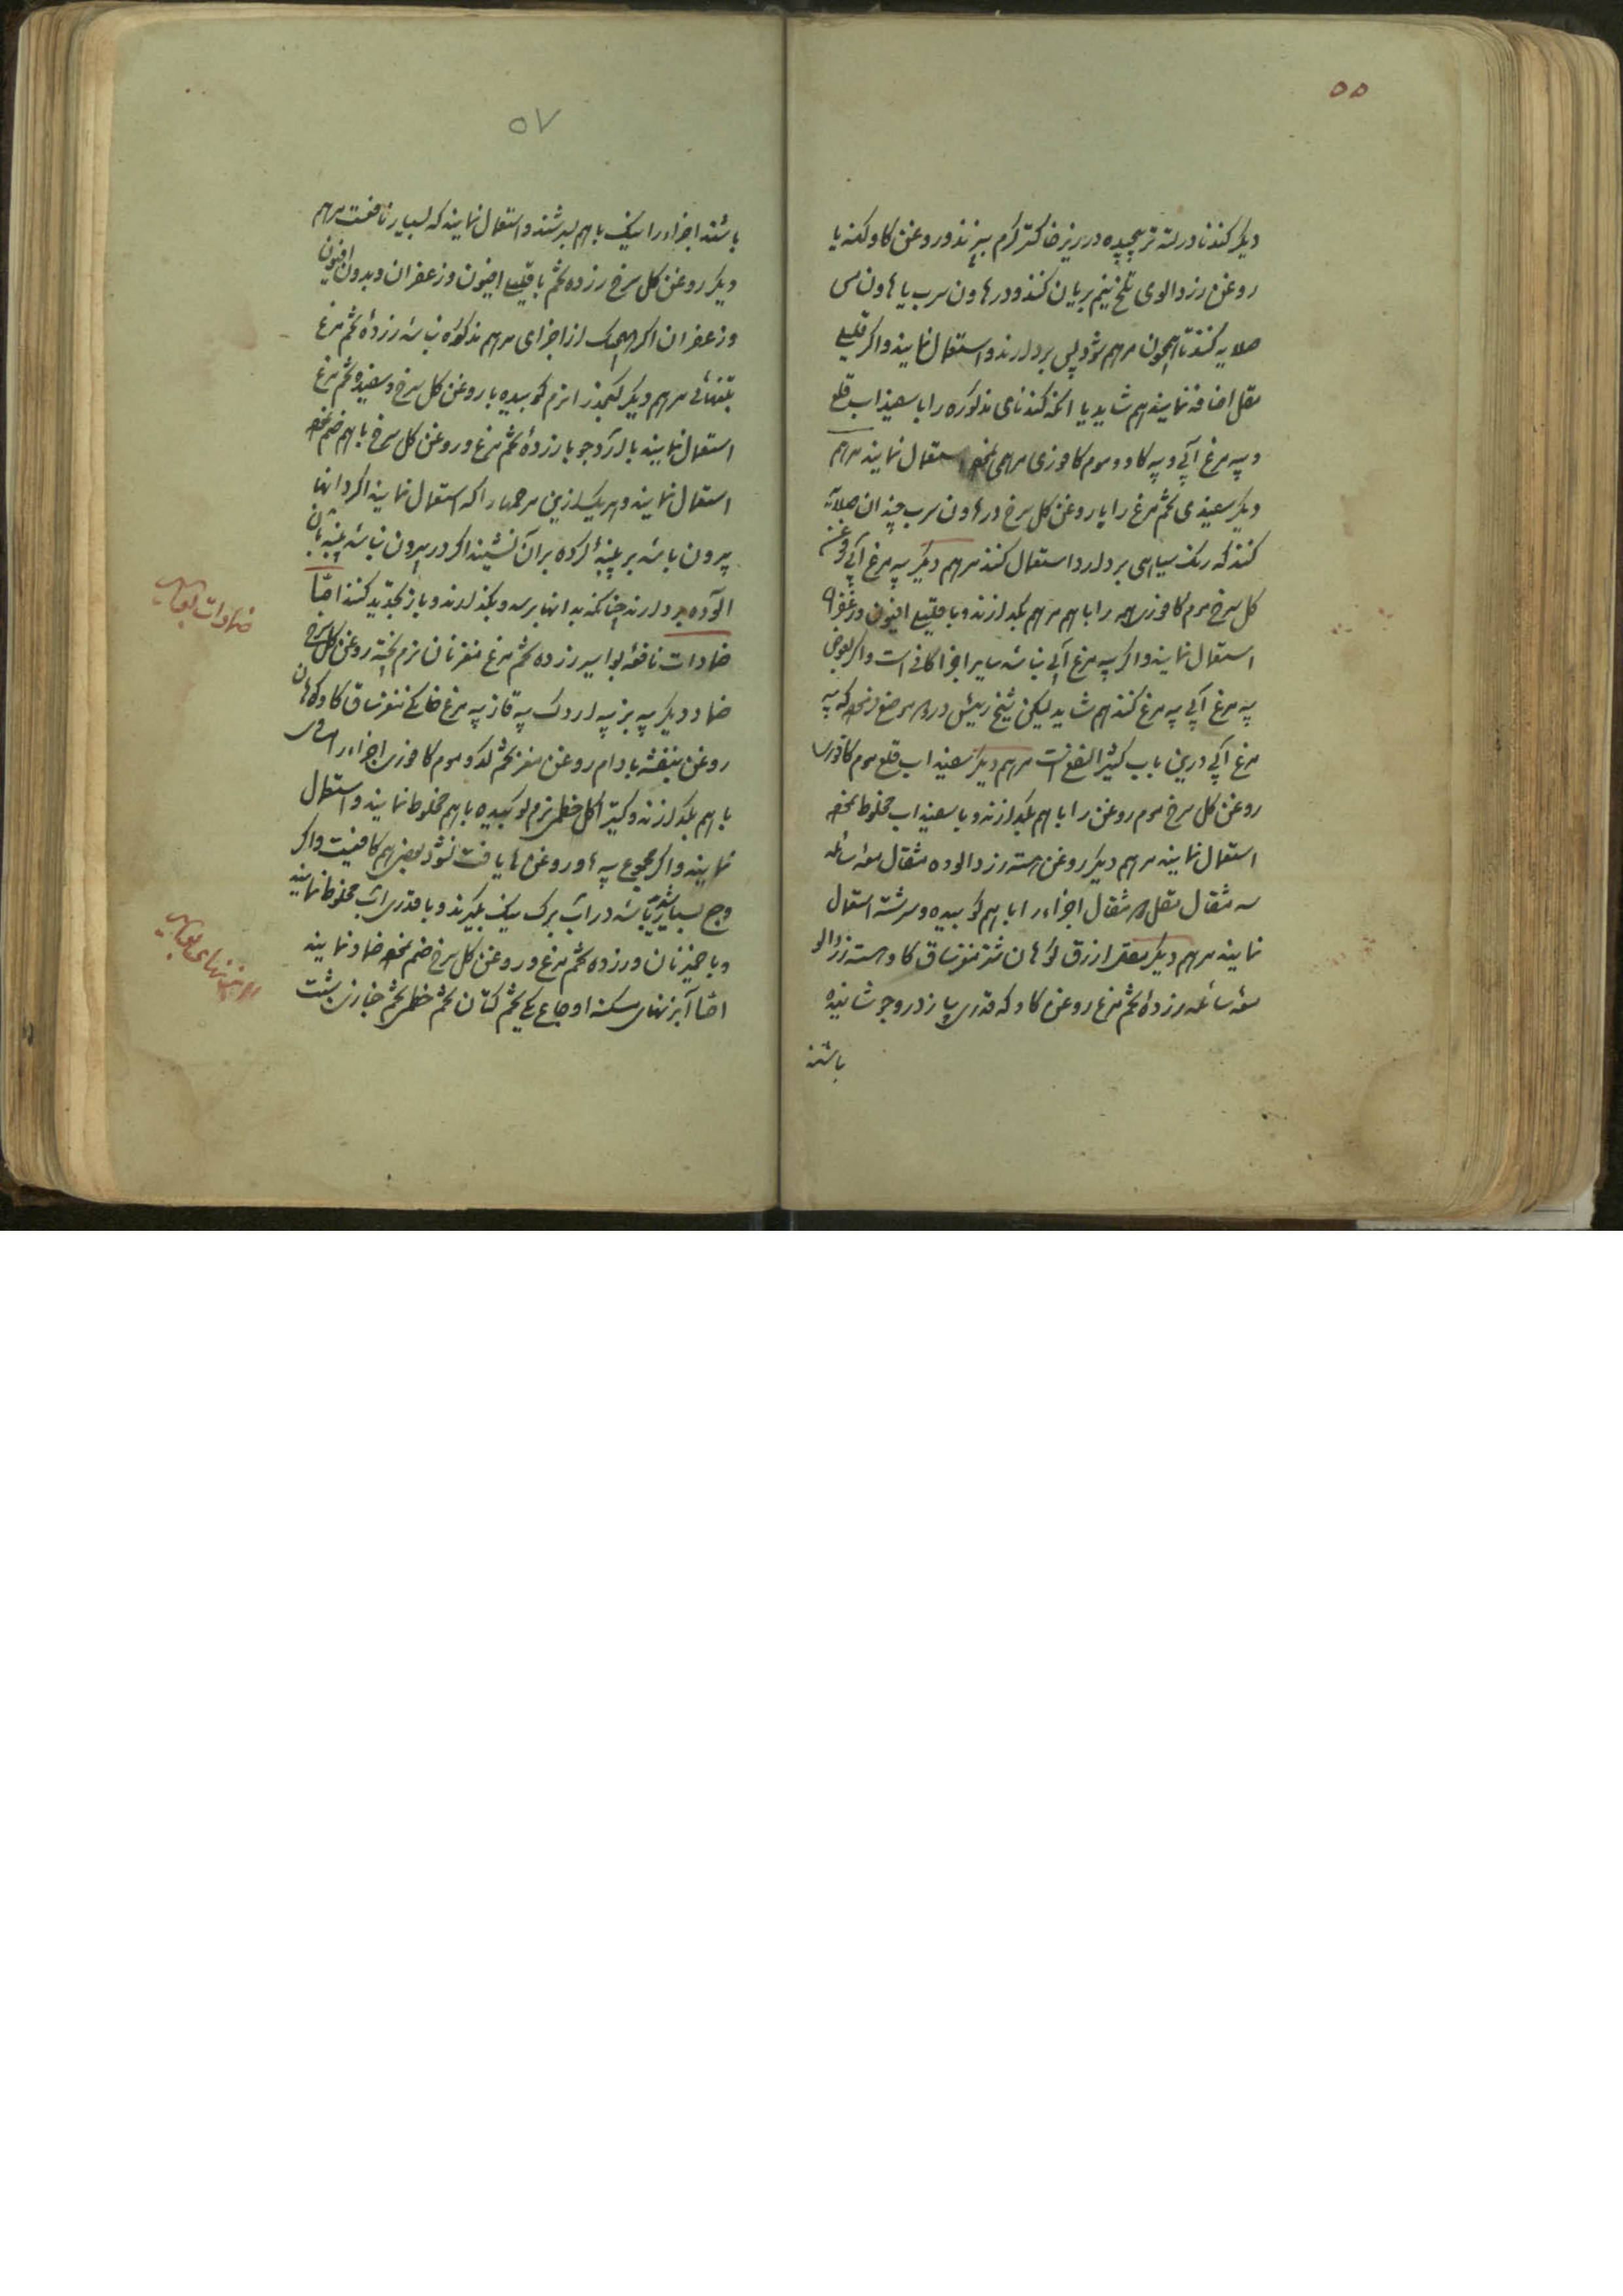 ۵۵
دیگر کندنا در لته تر پیچیده در زیر خاکستر گرم بپزند و روغن گاو کهنه یا
روغن زردالوی تلخ نیم بریان کنند و در هاون سرب یا هاون مس
صلایه کنند تا همچون مرهم شود پس بردارند و استعمال نمایند و اگر قلیلی
مقل اضافه نمایند هم شاید یا آنکه کندنای مذکوره را با سفیداب قلع
و پیه مرغ آبی و پیه گاو و موم کافوری مرهمی استعمال نمایند مرهم
دیگر سفیدی تخم مرغ را با روغن گل سرخ در هاون سرب چندان صلایه
کنند که رنگ سیاهی بردارد و استعمال کنند مرهم دیگر پیه مرغ آبی روغن
گل سرخ موم کافوری را با هم مرهم بگدازند و با قلیلی افیون و زعفران
استعمال نمایند و اگر پیه مرغ آبی نباشد سایر اجزا کافی است و اگر بعوض
پیه مرغ آبی پیه مرغ کنند هم شاید لیکن شیخ رئیس در که پیه
مرغ آبی درین باب کثیر النفع است مرهم دیگر سفیداب قلع موم کافوری
روغن گل سرخ موم روغن را با هم بگدازند و با سفیداب مخلوط نموده
استعمال نمایند مرهم دیگر روغن هسته زردالو ده مثقال میعه سائله
سه مثقال مقل مثقال اجزاء را با هم کوبیده و سرشته استعمال
نمایند مرهم دیگر مقل ازرق کوهان شتر مغز ساق گاو هسته زردالو
میعه سائله زردهٔ تخم مرغ روغن گاو که قدری پیاز درو جوشانیده
باشند
۵۷
باشند اجزاء را نیک با هم بسرشند و استعمال نمایند که بسیار نافعست مرهم
دیگر روغن گل سرخ زرده تخم با قلیلی افیون و زعفران و بدون افیون
و زعفران اگر هیچیک از اجزای مرهم مذکوره نباشد زردهٔ تخم مرغ
بتنهائی مرهم دیگر کنجد را نرم کوبیده با روغن گل سرخ و سفیده تخم مرغ
استعمال نمایند یا آرد جو با زردهٔ تخم مرغ و روغن گل سرخ با هم ضم نموده
استعمال نمایند و هر یک ازین مرهمها را که استعمال نمایند اگر دانها
بیرون باشد بر پنبه کرده بر آن نشیند اگر در بیرون نباشد پنبه بآن
آلوده بردارند چنانکه بدانها برسد و بگذارند و باز تجدید کنند امّا
ضمادات نافعه بواسیر زرده تخم مرغ مغز نان نرم پخته روغن گل سرخ
ضماد دیگر پیه بز پیه اردک پیه قاز پیه مرغ خانگی مغز ساق گاو کوهان
روغن بنفشه بادام روغن مغز تخم کدو موم کافوری اجزاء را
با هم بگدازند و کتیرا گل خطمی نرم کوبیده با هم مخلوط نمایند و استعمال
نمایند و اگر مجموع پیه‌ها و روغن‌ها یافت نشود بعضی هم کافیست و اگر
وجع بسیار شدید باشد در آب برگ بنگ بگیرند و با قدری آب مخلوط نمایند
و با خمیر نان و زرده تخم مرغ و روغن گل سرخ ضم نموده ضماد نمایند
امّا آبزنهای مسکنه اوجاع تخم کتان تخم خطمی تخم خبازی شبت
ضمادات بواسیر
آبزنهای بواسیر